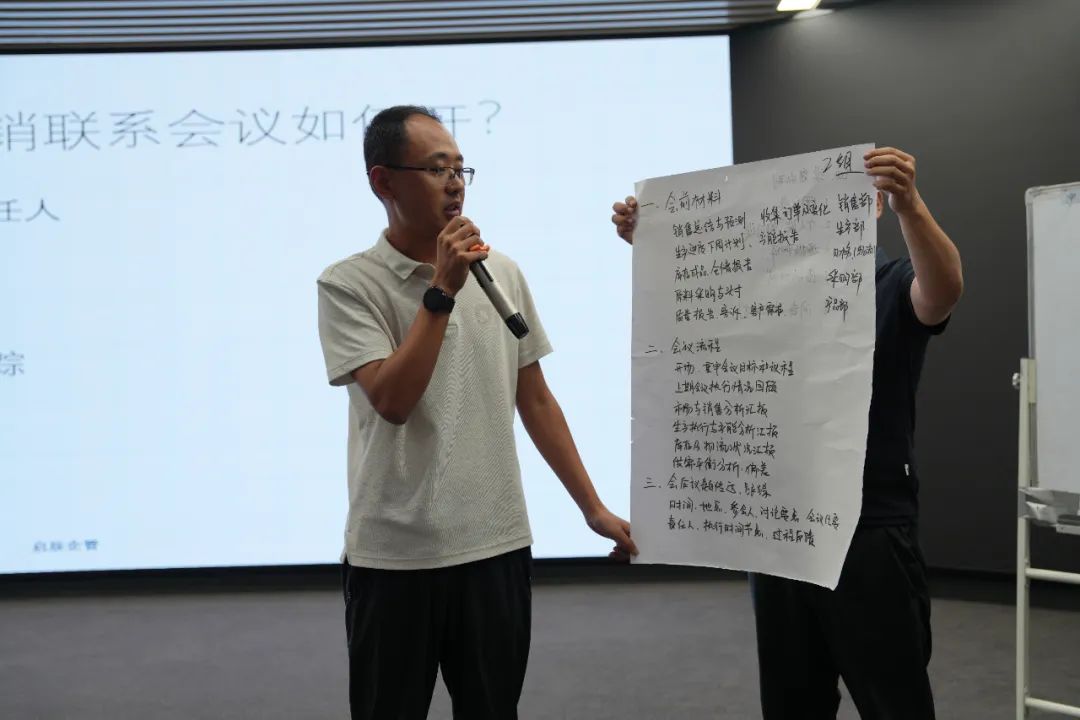 销联系会议如何开?
任人
综
启胰企管
2组
一. 会前材料
销售总结与预测、收集订单及变化 销售部
生产进度下周计划、产能报告 生产部
库存成品、仓储报告 财务
原料采购与 采购部
质量报告、客诉、客户需求 品部
二. 会议流程
开场、重申会议目标和议程
上期会议执行情况回顾
市场与销售分析汇报
生产执行与产能分析汇报
库存及物流状况汇报
供需平衡分析、偏差
三. 会后议题 跟踪
时间、地点、参会人、讨论要点、会议纪要
责任人、执行时间节点、过程反馈